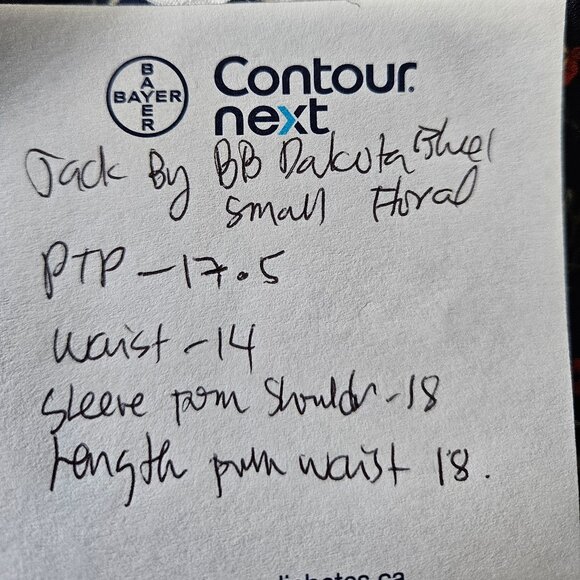 BAYER
BAYER
Contour
next
Jack By BB Dakota Blue
Small Floral
PTP - 17.5
waist - 14
Sleeve from Shouldr - 18
Length from waist 18.
diabetes.ca